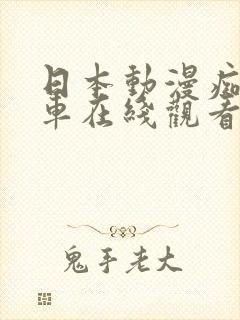 日本動漫痴
車在綫觀看
鬼手老大